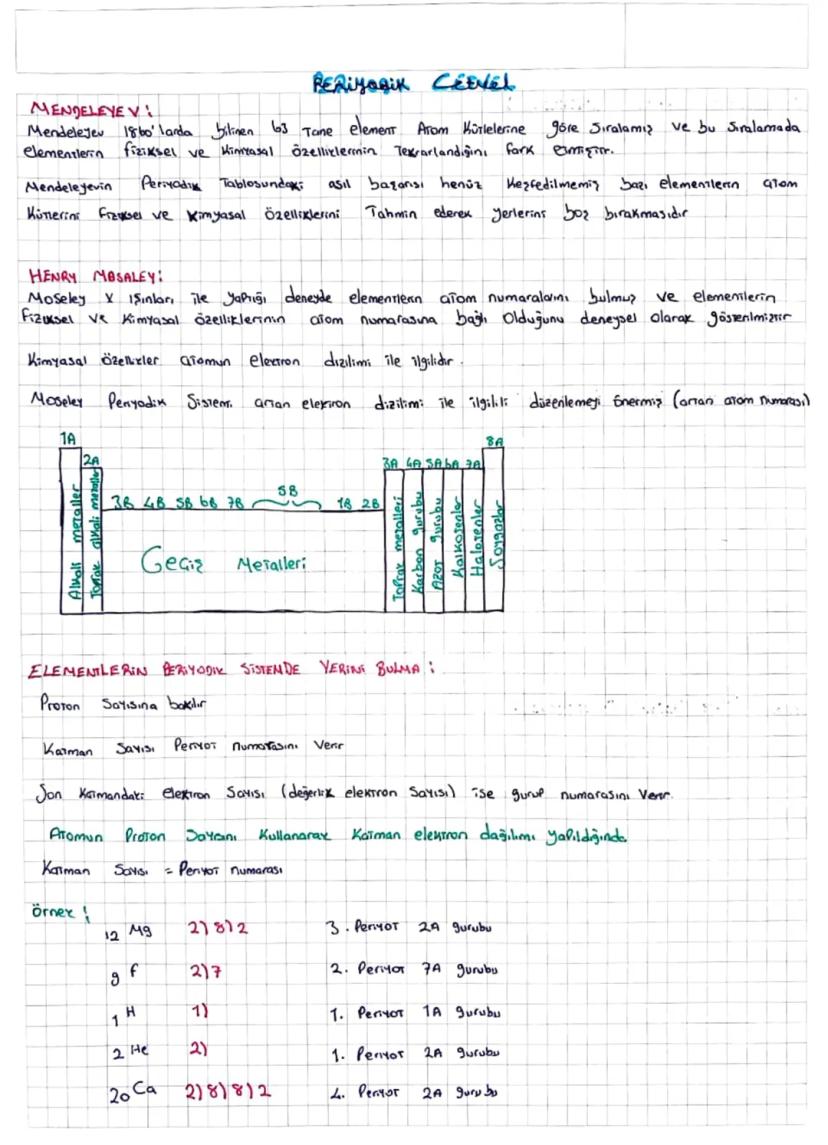 PERİYODİK CETVEL
MENDELEYEV:
Mendeleyev 1860'larda bilinen 63 Tane element Atom Kütlelerine göre Sıralamış ve bu Sıralamada
elementlerin fiziksel ve kimyasal özelliklerinin Tekrarlandığını fark etmiştir.
Mendeleyevin Periyodik Tablosundaki asıl başarısı henüz Keşfedilmemiş bazı elementlerin atom
Kütlerini fiziksel ve kimyasal özelliklerini Tahmin ederek yerlerini boş bırakmasıdır
HENRY MOSALEY:
Moseley X Işınları ile yaptığı deneyde elementlerin atom numaralarını bulmuş ve elementlerin
fiziksel ve kimyasal özelliklerinin atom numarasına bağlı olduğunu deneysel olarak gösterilmiştir
Kimyasal özellikler atomun elektron dizilimi ile ilgilidir.
Moseley Periyodik Sistemi artan elektron dizilimi ile ilgilili düzenlemeyi önermiş (artan atom numarası)
1A
8A
2A
3A 4A 5A 6A 7A
3B 4B 5B 6B 7B 8B 1B 2B
Alkali metaller
Toprak alkali metaller
Geçiş Metalleri
Toprak metalleri
Karbon gurubu
Azot gurubu
Kalkojenler
Halojenler
Soygazlar
ELEMENTLERİN PERİYODİK SİSTEMDE YERİNİ BULMA:
Proton Sayısına bakılır
Katman Sayısı Periyot numarasını Verir
Son Katmandaki elektron Sayısı (değerlik elektron Sayısı) ise gurup numarasını Verir.
Atomun Proton Sayısını Kullanarak Katman elektron dağılımı yapıldığında
Katman Sayısı = Periyot numarası
Örnek:
12 Mg 2)8)2 3. Periyot 2A gurubu
9 f 2)7 2. Periyot 7A gurubu
1 H 1) 1. Periyot 1A gurubu
2 He 2) 1. Periyot 2A gurubu
20 Ca 2)8)8)2 4. Periyot 2A gurubu